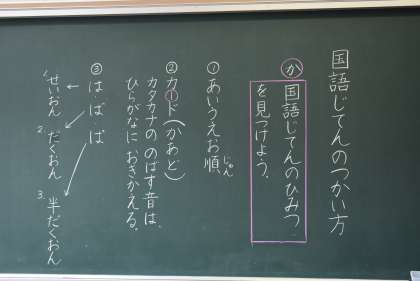 国語じてんのつかい方
か
国語じてんのひみつ
を見つけよう。
①あいうえお順、じゅん
②カード(かあど)
カタカナののばす音は、
ひらがなにおきかえる。
③は ば ぱ
1.せいおん
2.だくおん
3.半だくおん